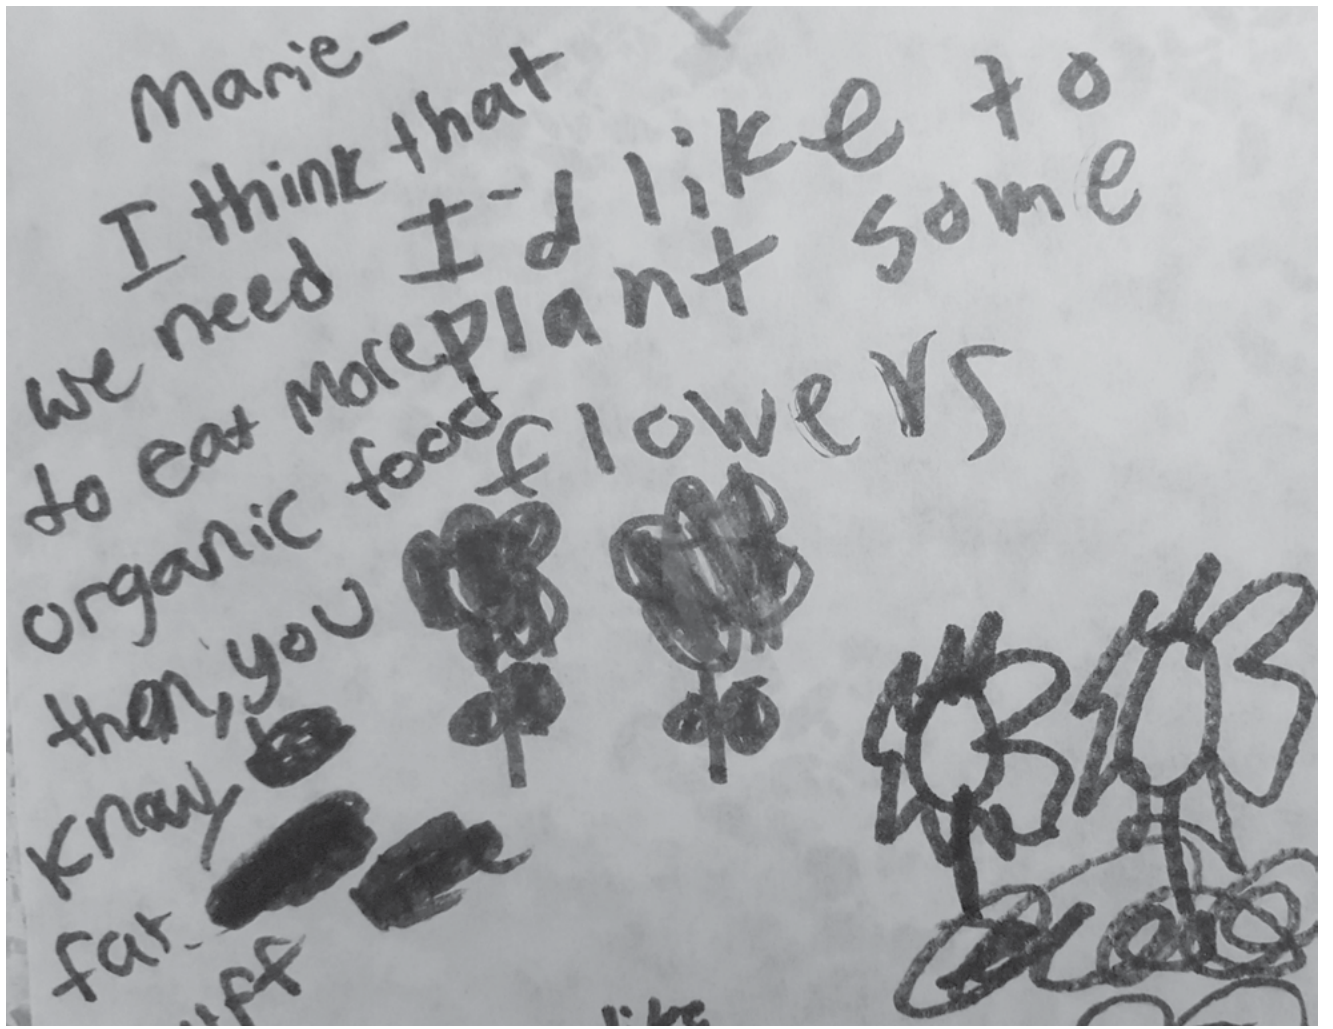 Marie-
I think that
we need
to eat more
organic food
then, you
know,
fat.
I'd like to
plant some
flowers
like